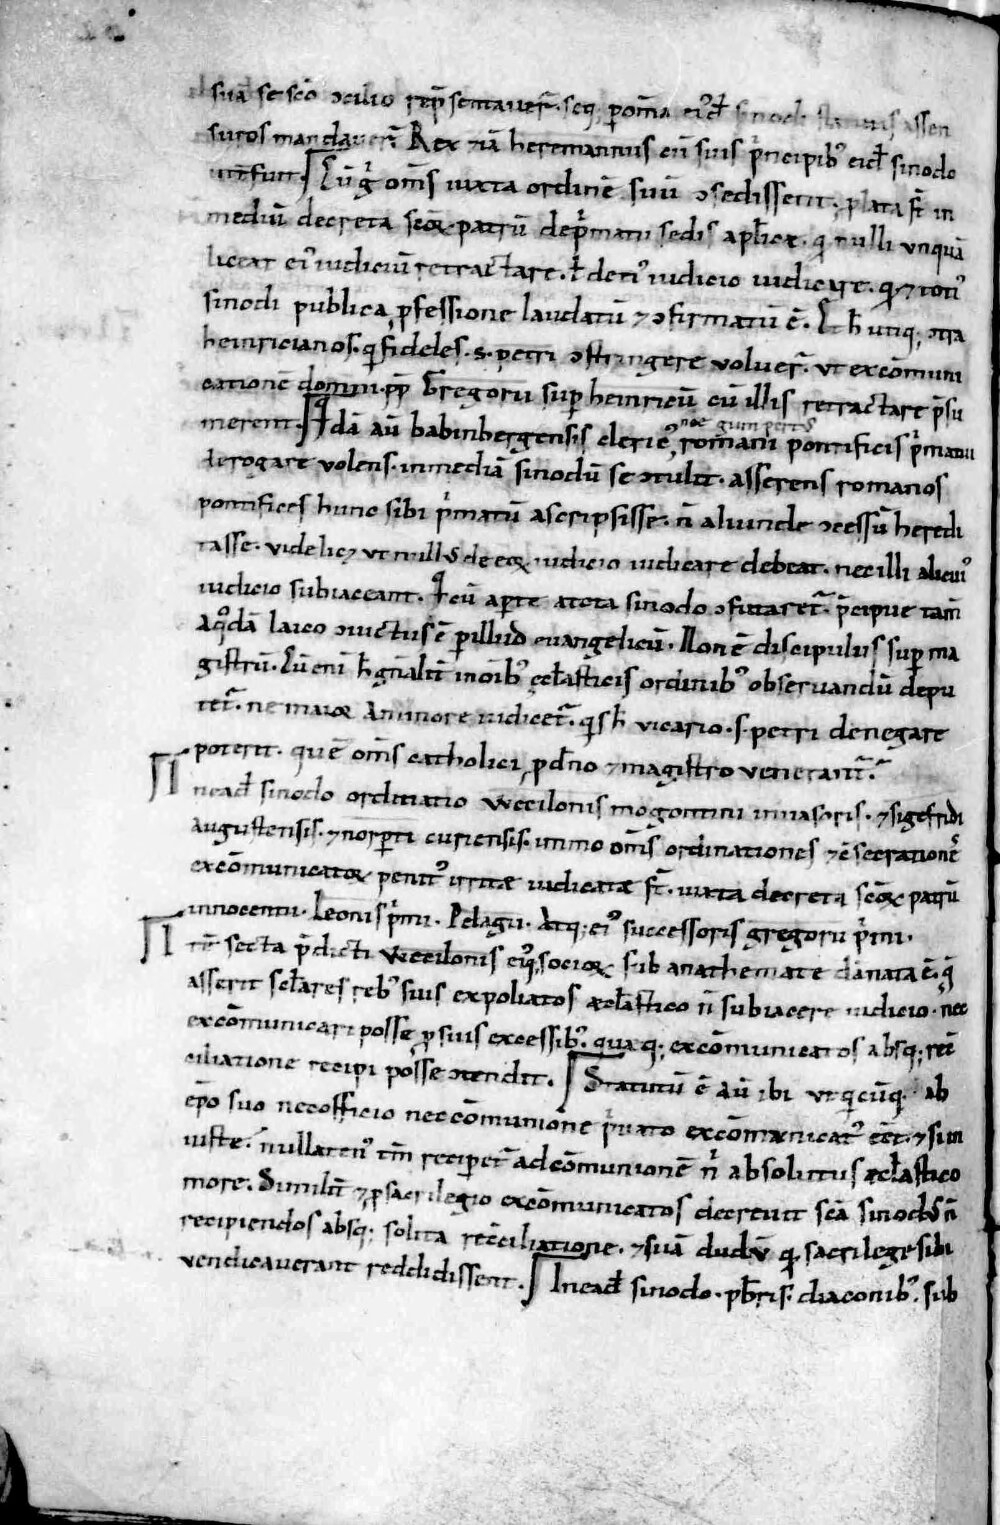 suā se scō ɔcilio rep̄sentauer̄. seq; p om̄a ei᾽d̄ sinodi statutis assen
suros mandauer̄. Rex etiā heremannus cū suis p̄ncipib᾽ eid̄ sinodo
int̄fuit. Cū g̊ om̄s iuxta ordinē suū ɔsedissent, plata st̄ in
mediū decreta scōꝝ patrū de p̄matu sedis aplicę. q̄ nulli unquā
liceat ei᾽ iudiciū retractare. ł de ei᾽ iudicio iudicare. q̄ & toti᾽
sinodi publica pfessione laudatū & ɔfirmatū ē. Et h̄ utiq; ɔtra
heinricianos. q̄ fideles .s. petri ɔstringere uoluer̄. ut excōmuni
cationē domni pp̄ Gregorii sup heinricū cū illis retractare p̄su
merent. Qdā aū babinbergensis cleric᾽ noē gumpert᾽ romani pontificis p̄matui
derogare uolens. in mediā sinodū se ɔtulit. asserens romanos
pontifices hunc sibi p̄matū ascripsisse. n̄ aliunde ɔcessū heredi
tasse. uidelic& ut null᾽ de eoꝝ iudicio iudicare debeat. nec illi alicui᾽
iudicio subiaceant. Q cū apte a tota sinodo ɔfutaret᷑. p̄cipue tam̄
a qdā laico ɔuictus ē p illud euangelicū. Non ē discipulus sup ma
gistrū. Cū eni h̄ gn̄alit̄ in oīb᾽ ęcclasticis ordinib᾽ obseruandū depu
tet᷑. ne maior a minore iudicet᷑. q̄s h̄ uicario .s. petri denegare
poterit. quē om̄s catholici, p dn̄o & magistro uenerant᷑.
In ead̄ sinodo ordinatio wecilonis mogontini inuasoris. & sigefridi
augustensis. & norpti curiensis. immo om̄s ordinationes & ɔsecrationes
excōmunicatoꝝ penit᾽ irritę iudicatę st̄. iuxta decreta scōꝝ patrū
innocentii. Leonis p̄mi. Pelagii. Atq; ei᾽ successoris gregorii p̄mi.
It̄ secta p̄dicti Wecilonis ei᾽q; socioꝝ sub anathemate dānata ē. q̄
asserit scl̄ares reb᾽ suis expoliatos ęcclastico n̄ subiacere iudicio. nec
excōmunicari posse p suis excessib᾽. quaq; excōmunicatos absq; recō
ciliatione recipi posse ɔtendit. Statutū ē aū ibi ut q̄cūq; ab
ep̄o suo nec officio nec cōmunione p̄uato excōmunicat᾽ eēt. & si in
iuste. nullaten᾽ tm̄ reciperet᷑ ad cōmunionē n̄ absolutus ęcclastico
more. Similit̄ & p sacrilegio excōmunicatos decreuit scā sinod᾽ n̄
recipiendos absq; solita recōciliatione. & suā dudū q̄ sacrilege sibi
uendicauerant reddidissent. In ead̄ sinodo. pbr̄is. diaconib᾽. sub